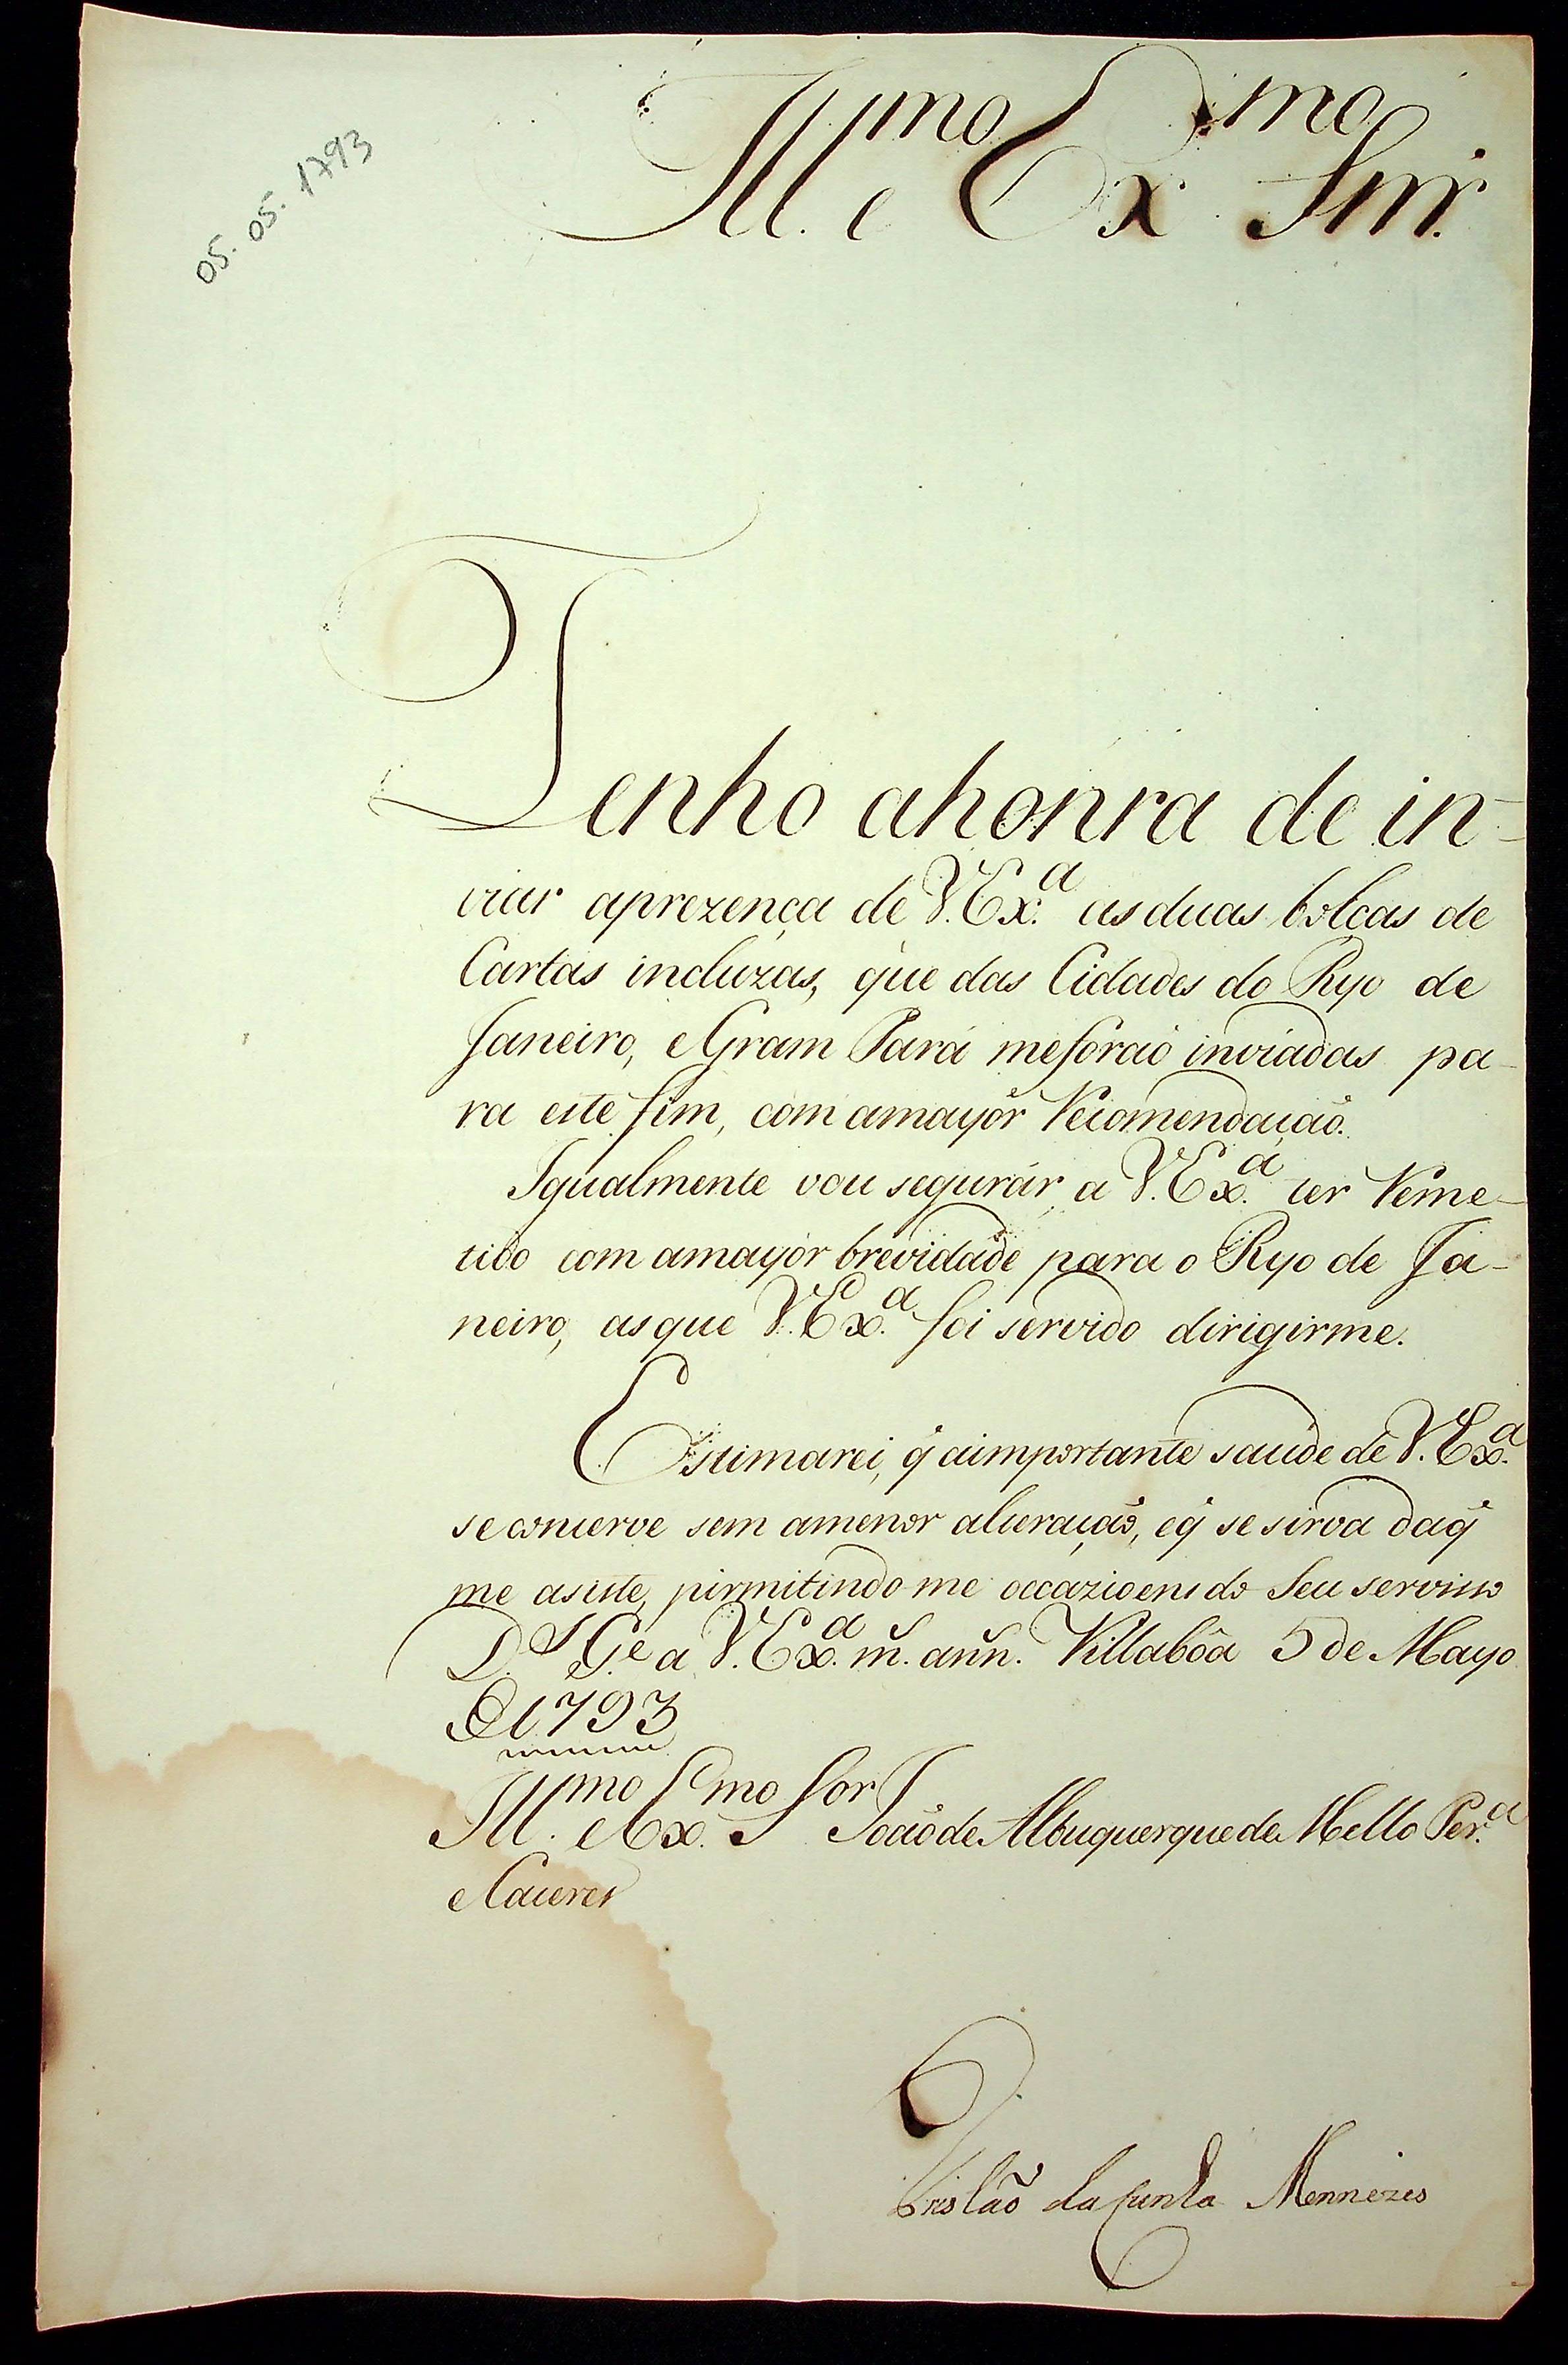 05.05.1793
Ill.mo e Ex.mo Snr.
Tenho ahonra de in-
viar aprezença de V. Ex.a as duas bolças de
Cartas incluzas, que das Cidades do Ryo de
Janeiro, e Gram Pará me forão inviadas pa-
ra este fim, com amayor recomendação.
Igualmente vou segurár a V. Ex.a ter reme-
tido com amayór brevidade para o Ryo de Ja-
neiro, as que V. Ex.a foi servido dirigirme.
Estimarei, q̃ aimportante saude de V. Ex.a
se conserve sem amenor alteração, e q̃ se sirva da q̃
me asiste, pirmitindo-me occazioens do Seu serviso
D.s G.e a V. Ex.a m.s ann.s Villabôa 5 de Mayo
de 1793
Ill.mo e Ex.mo Sor João de Albuquerque de Mello Per.a
e Caceres
Tristão da Cunha Mennezes